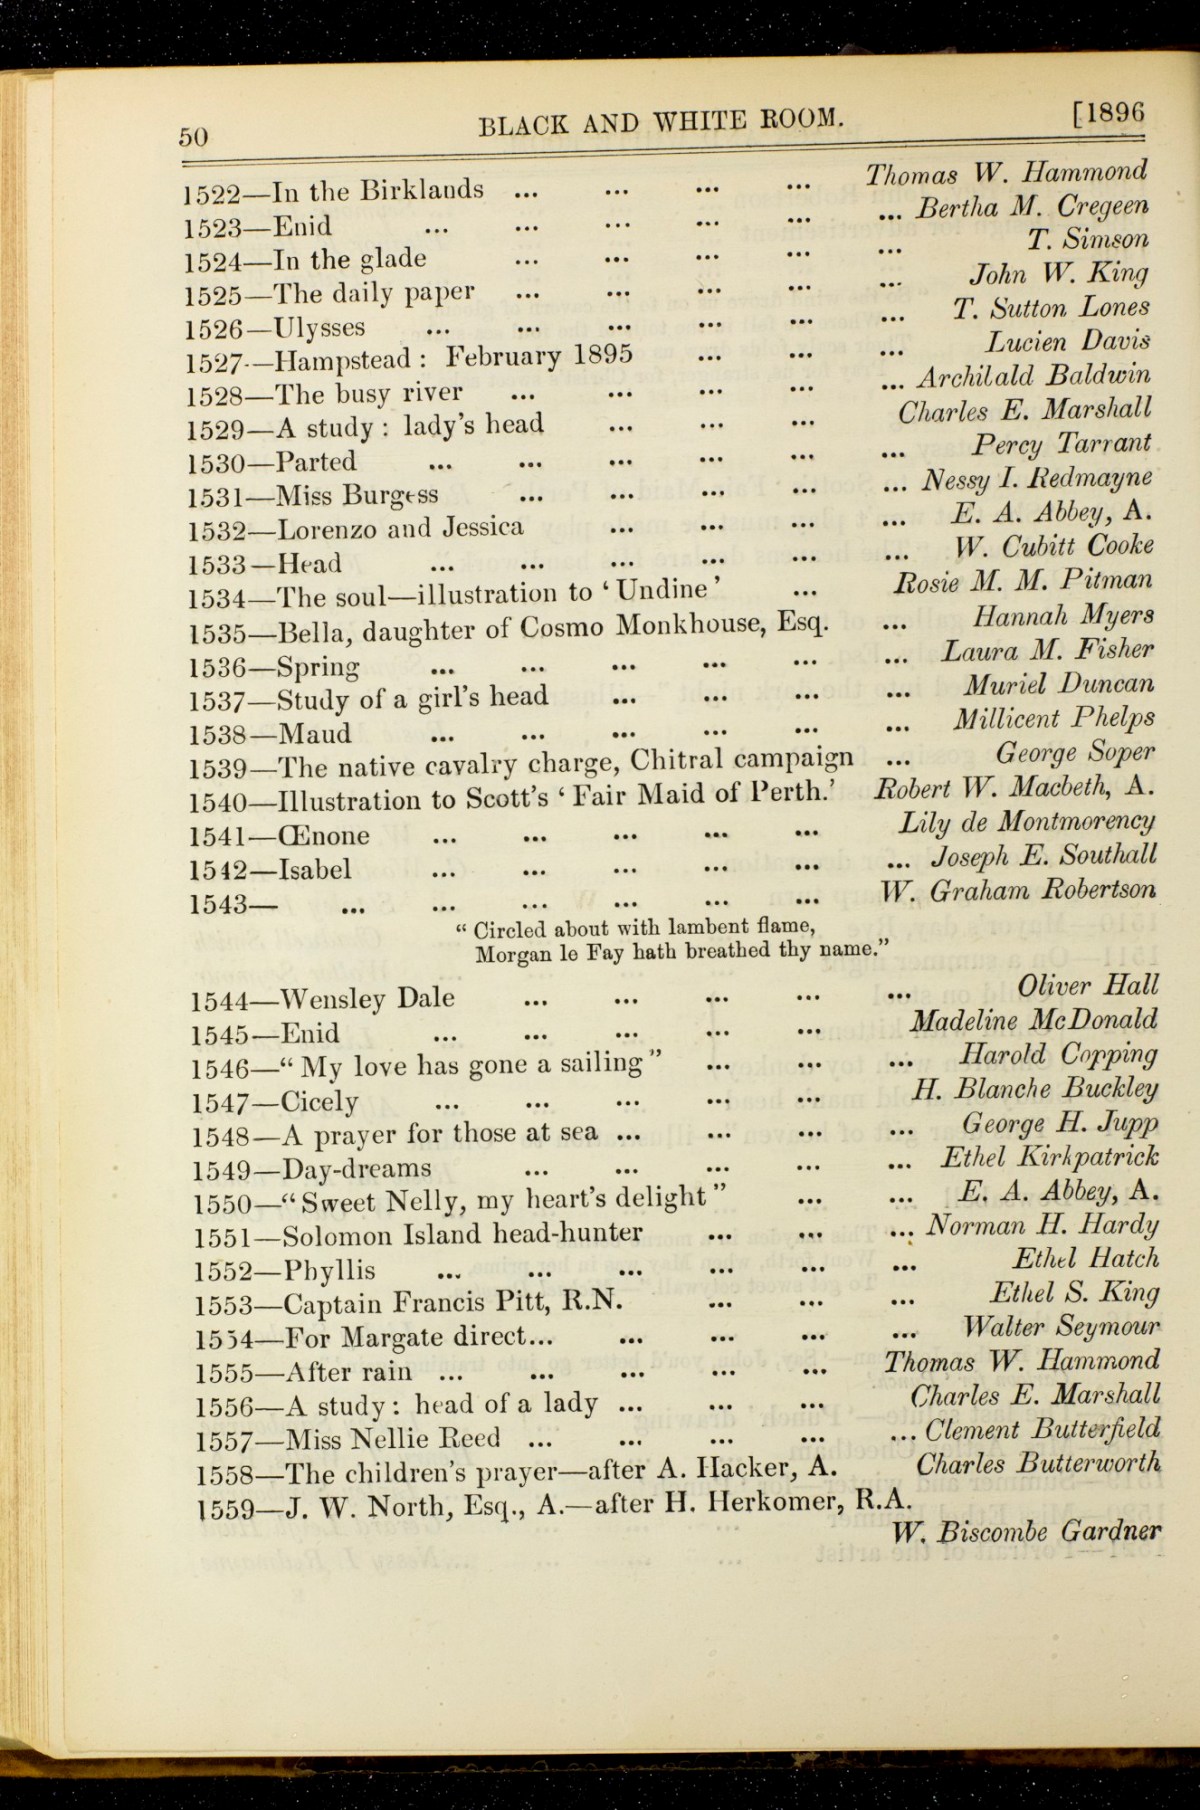 50 BLACK AND WHITE ROOM. [1896
1522—In the Birklands ... ... ... ... Thomas W. Hammond
1523—Enid ... ... ... ... ... ... Bertha M. Cregeen
1524—In the glade ... ... ... ... ... T. Simson
1525—The daily paper ... ... ... ... ... John W. King
1526—Ulysses ... ... ... ... ... ... T. Sutton Lones
1527—Hampstead : February 1895 ... ... ... Lucien Davis
1528—The busy river ... ... ... ... ... Archilald Baldwin
1529—A study : lady's head ... ... ... Charles E. Marshall
1530—Parted ... ... ... ... ... ... Percy Tarrant
1531—Miss Burgess ... ... ... ... ... Nessy I. Redmayne
1532—Lorenzo and Jessica ... ... ... ... E. A. Abbey, A.
1533—Head ... ... ... ... ... ... W. Cubitt Cooke
1534—The soul—illustration to ‘ Undine ’ ... Rosie M. M. Pitman
1535—Bella, daughter of Cosmo Monkhouse, Esq. ... Hannah Myers
1536—Spring ... ... ... ... ... ... Laura M. Fisher
1537—Study of a girl's head ... ... ... ... Muriel Duncan
1538—Maud ... ... ... ... ... ... Millicent Phelps
1539—The native cavalry charge, Chitral campaign ... George Soper
1540—Illustration to Scott's ‘ Fair Maid of Perth.’ Robert W. Macbeth, A.
1541—Œnone ... ... ... ... ... Lily de Montmorency
1542—Isabel ... ... ... ... ... ... Joseph E. Southall
1543— ... ... ... ... ... ... W. Graham Robertson
“ Circled about with lambent flame,
Morgan le Fay hath breathed thy name.”
1544—Wensley Dale ... ... ... ... ... Oliver Hall
1545—Enid ... ... ... ... ... Madeline McDonald
1546—“ My love has gone a sailing ” ... ... ... Harold Copping
1547—Cicely ... ... ... ... ... H. Blanche Buckley
1548—A prayer for those at sea ... ... ... ... George H. Jupp
1549—Day-dreams ... ... ... ... ... Ethel Kirkpatrick
1550—“ Sweet Nelly, my heart's delight ” ... ... E. A. Abbey, A.
1551—Solomon Island head-hunter ... ... ... Norman H. Hardy
1552—Phyllis ... ... ... ... ... ... Ethel Hatch
1553—Captain Francis Pitt, R.N. ... ... ... Ethel S. King
1554—For Margate direct... ... ... ... ... Walter Seymour
1555—After rain ... ... ... ... ... Thomas W. Hammond
1556—A study : head of a lady ... ... ... Charles E. Marshall
1557—Miss Nellie Reed ... ... ... ... ... Clement Butterfield
1558—The children's prayer—after A. Hacker, A. Charles Butterworth
1559—J. W. North, Esq., A.—after H. Herkomer, R.A.
W. Biscombe Gardner